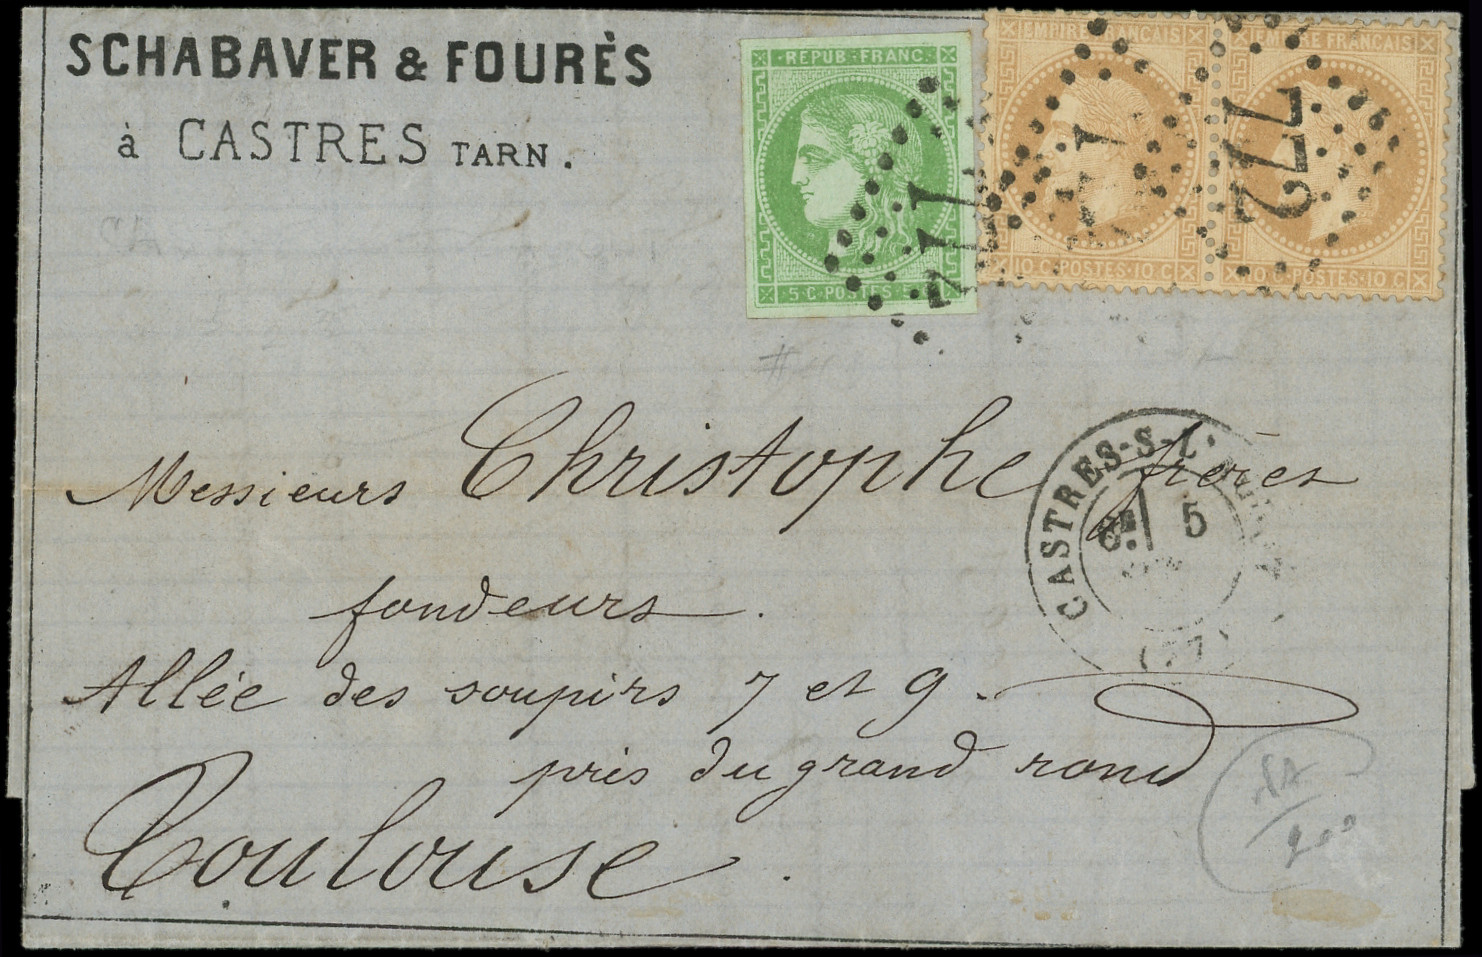 SCHABAVER & FOURÈS
à CASTRES TARN.
REPUB·FRANC·
5·C·POSTES·5
EMPIRE FRANÇAIS
10 C·POSTES·10 C
EMPIRE FRANÇAIS
10 C·POSTES·10 C
772
CASTRES-S-L'
6E 5
(77)
Messieurs Christophe frères
fondeurs.
Allée des soupirs 7 et 9.
près du grand rond
Toulouse.